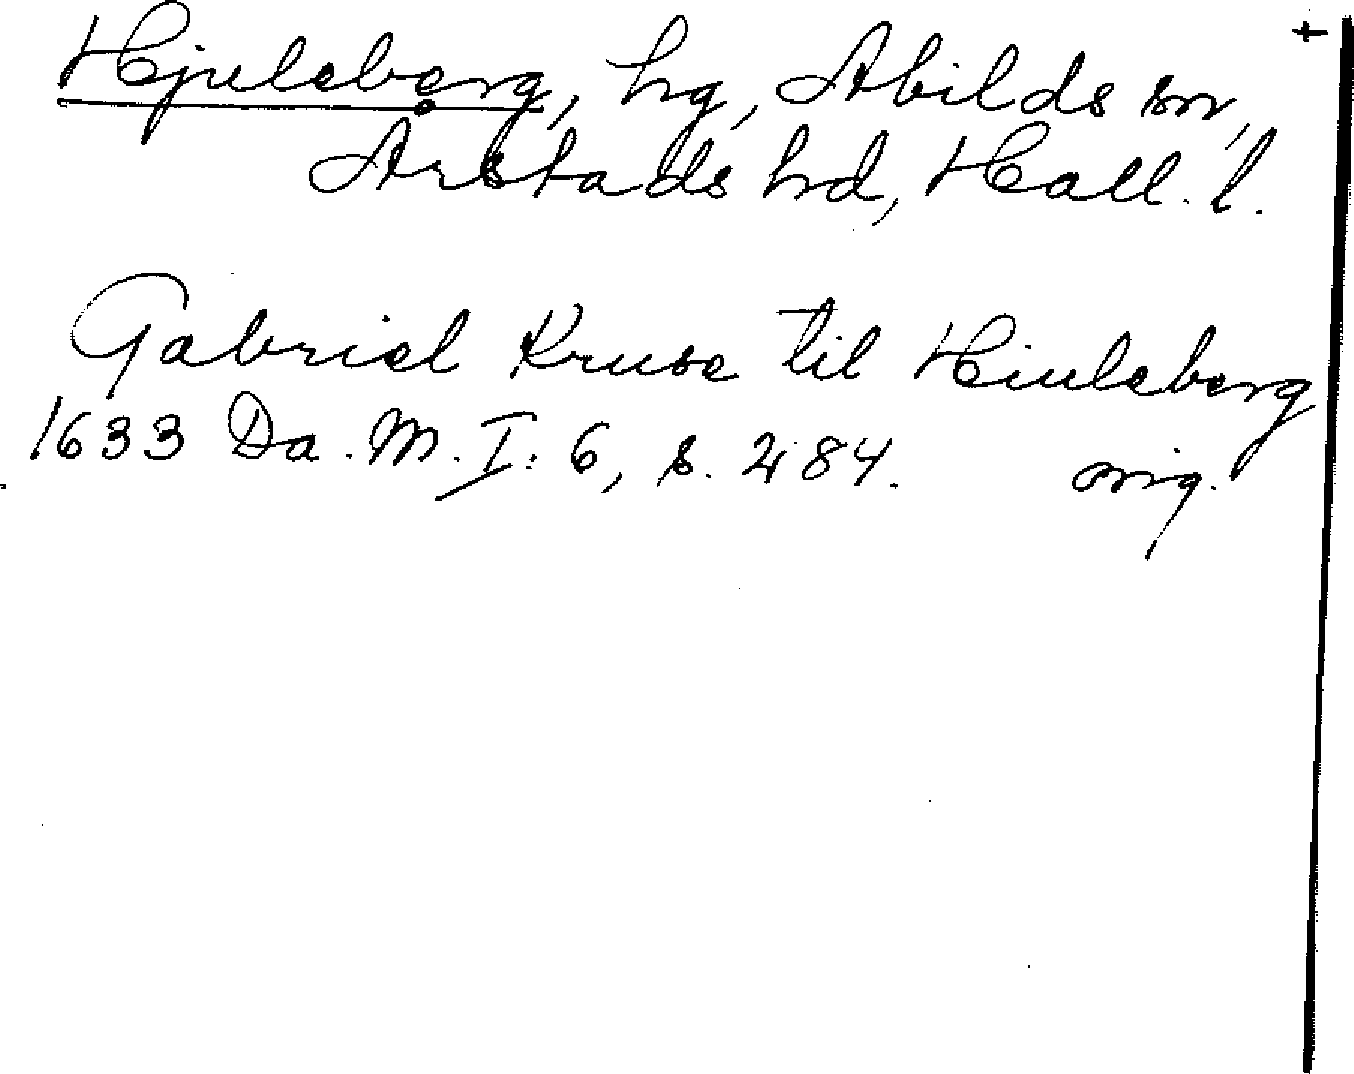 Hjuleberg, hg, Abilds sn,
Årstads hd, Hall. l.
Gabriel Kruse til Hiuleberg
1633 Da. M. I: 6, s. 284.